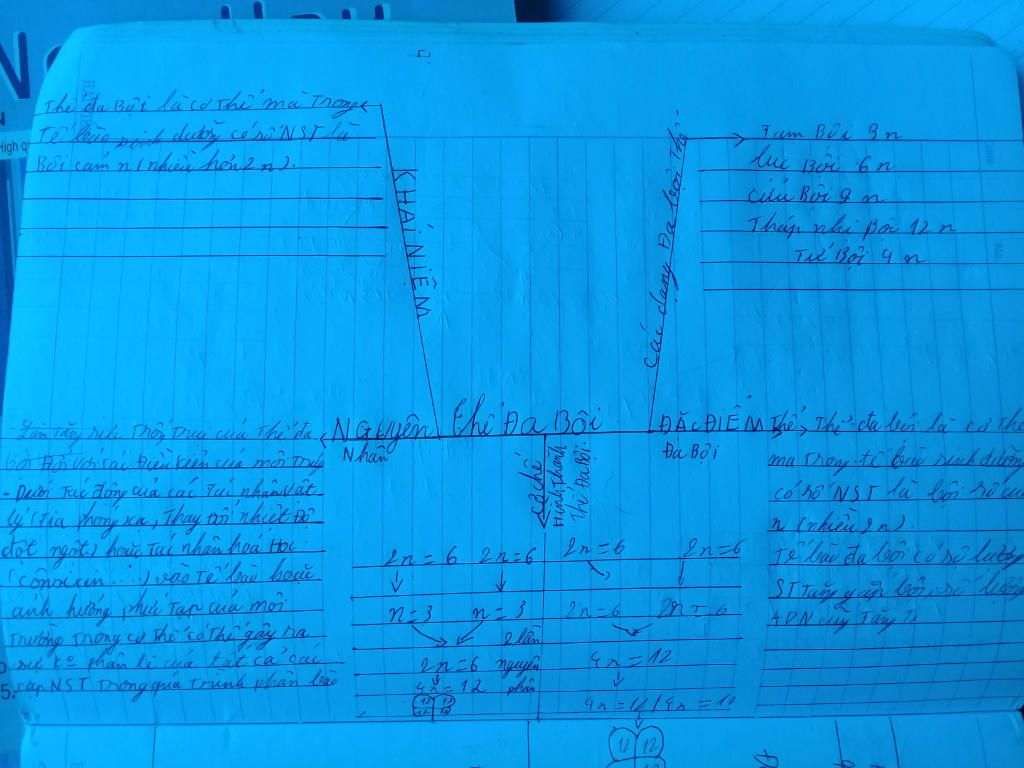 Thể đa Bội là cơ Thể mà Trong
Tế bào sinh dưỡng có số NST là
Bội của n (nhiều hơn 2n).
KHÁI NIỆM
Các dạng Đa bội Thể
Tam Bội 3n
lục Bội 6n
cửu Bội 9n
Tháp nhị Bội 12n
Tứ Bội 4n
Thể Đa Bội
NGUYÊN
Nhân
- Làm Tăng sức Trống Trụi của Thể đa
bội Đối với các Điều kiện của môi Trường
- Dưới Tác động của các Tác nhân vật
lý (Tia phóng xạ, Thay Đổi nhiệt Độ
đột ngột) hoặc Tác nhân hoá Học
(cônsixin...) vào Tế bào hoặc
ảnh hưởng phức Tạp của môi
Trường Trong cơ Thể có Thể gây ra
sự ko phân li của tất cả các
cặp NST Trong quá Trình phân bào
ĐẶC ĐIỂM Thể
Đa Bội
Thể đa bội là cơ Thể
mà Trong tế bào sinh dưỡng
có số NST là bội số của
n (nhiều 2n).
Tế bào đa bội có số lượng
ST Tăng gấp bội, số lượng
ADN cũng Tăng
Cơ chế
Hình Thành
Thể Đa Bội
2n=6 2n=6
n=3 n=3
2n=6
4n=12
2 lần
nguyên
phân
12 12
12 12
2n=6 2n=6
2n=6 2n=6
4n=12
4n=12 / 4n=12
12 12
12
High q
No
Date